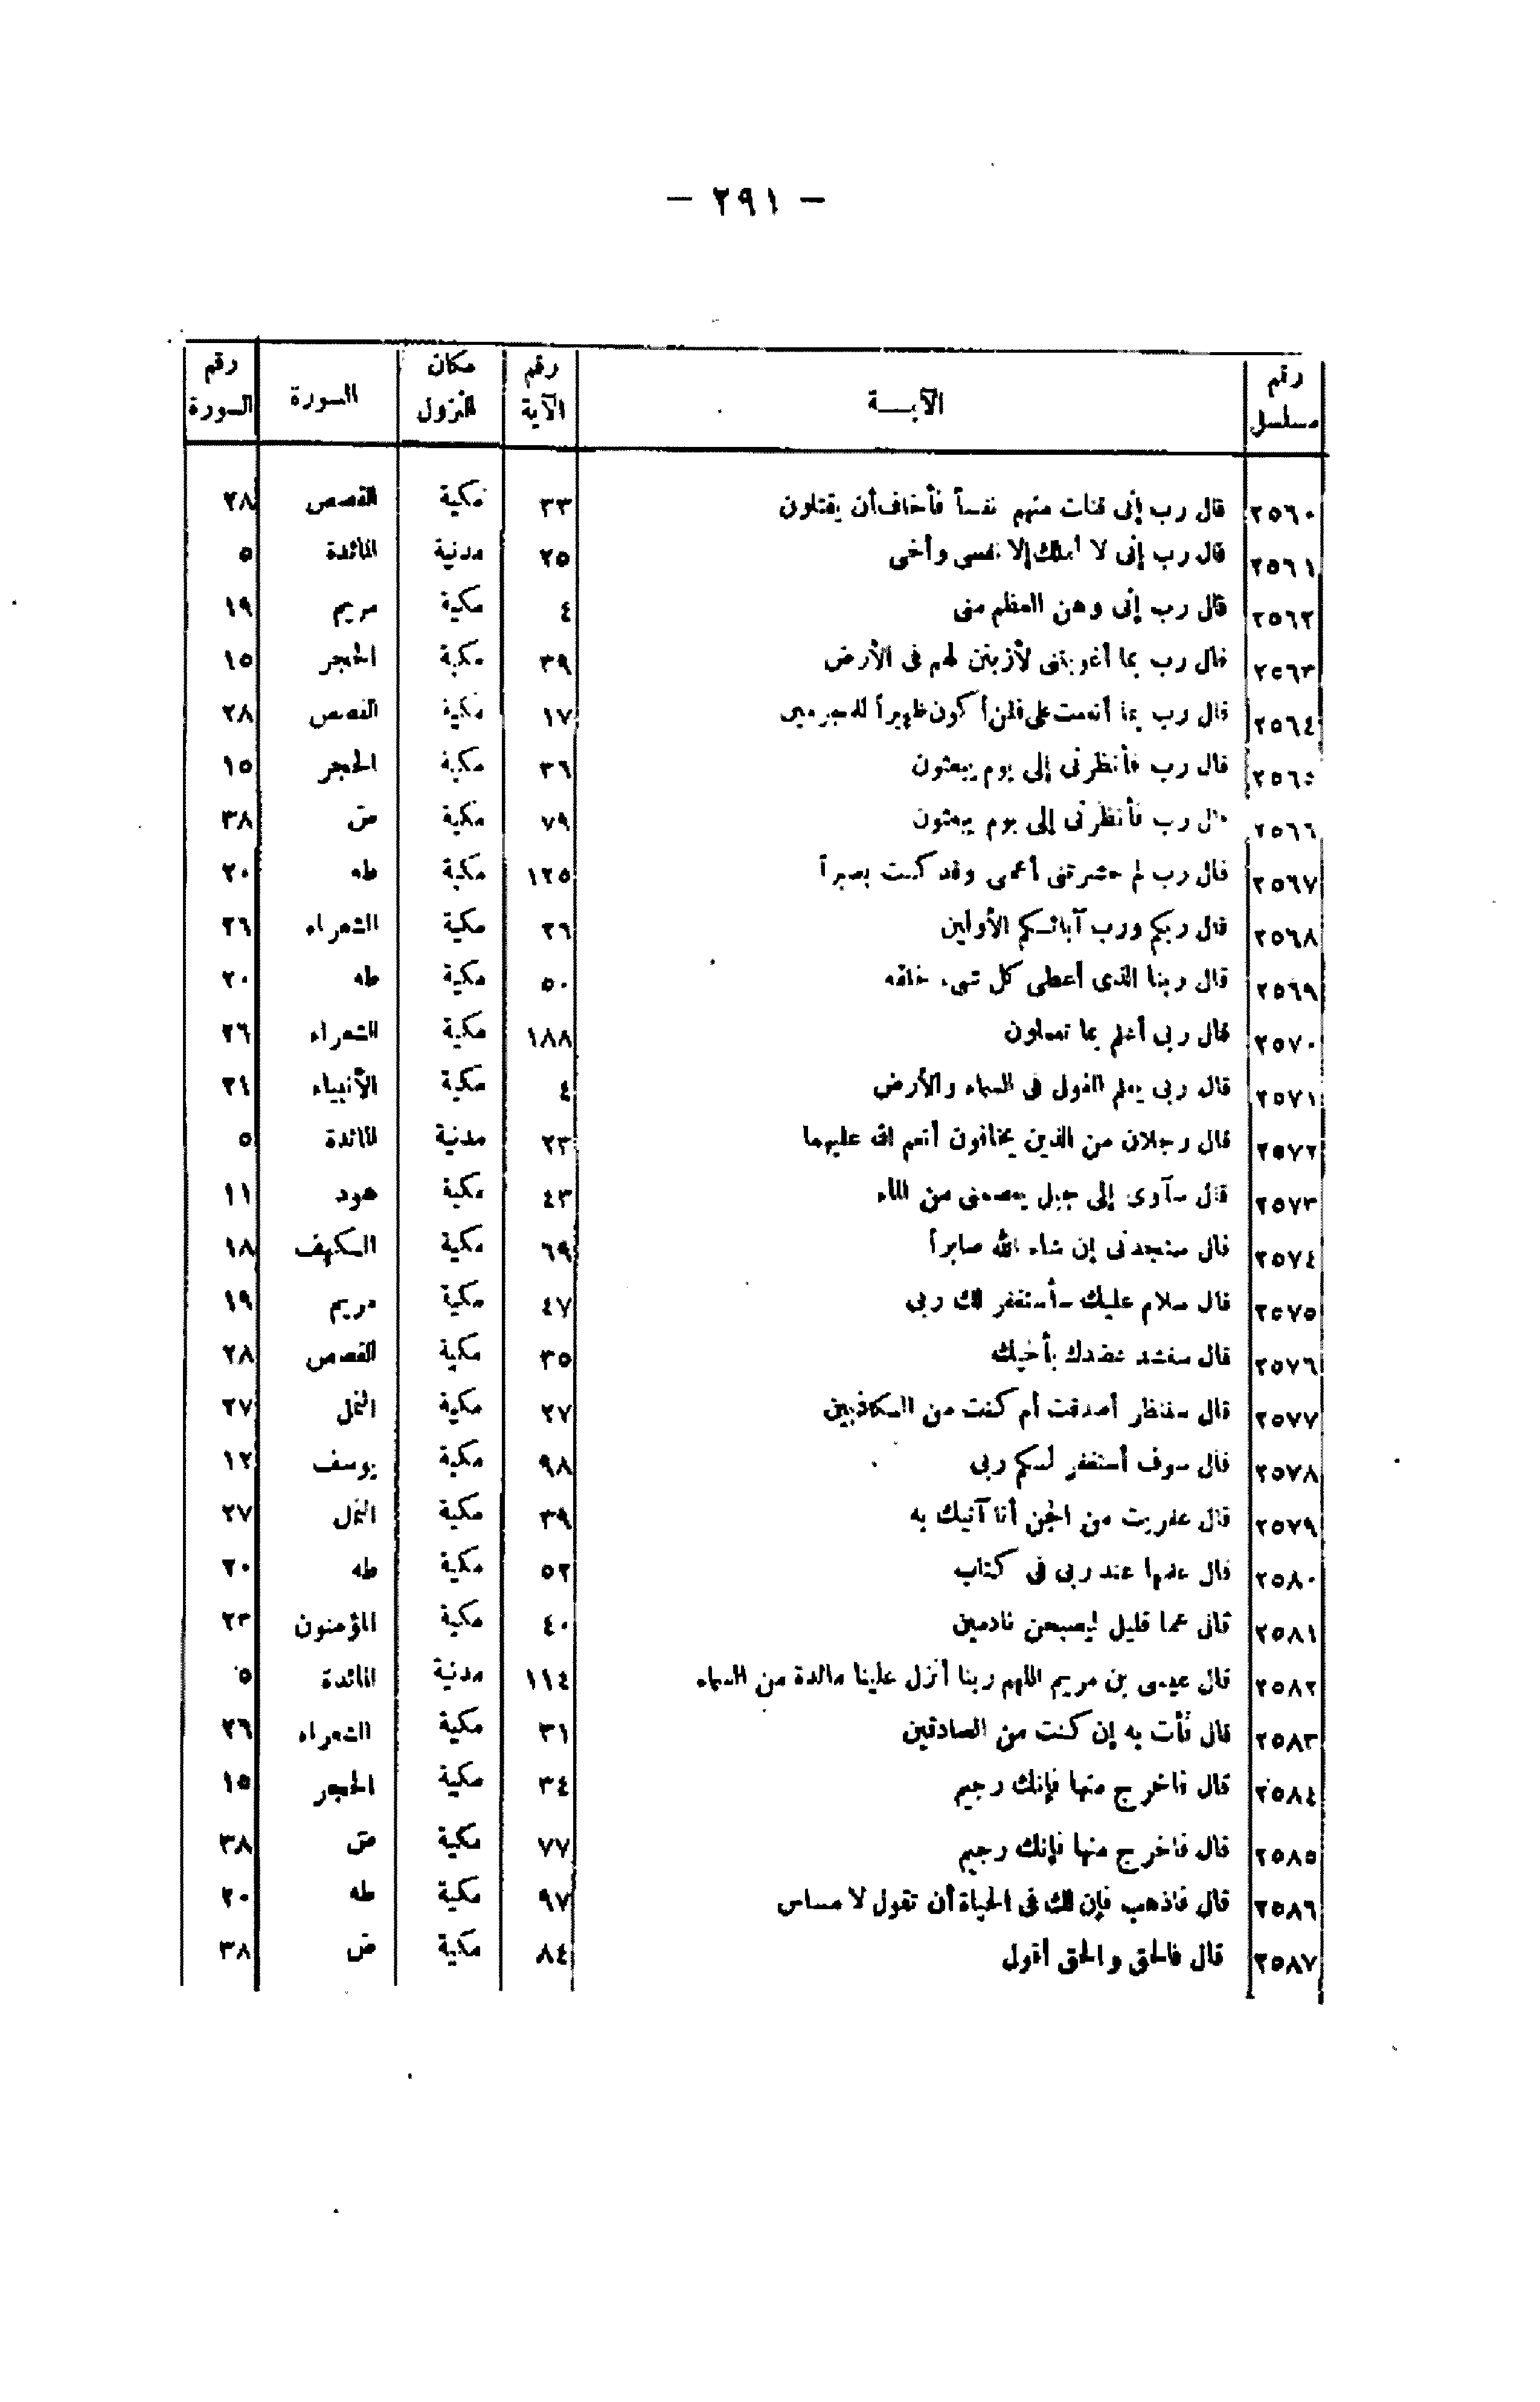 — ٢٩١ —
رقم مسلسل | الآيـــة | رقم الآية | مكان النزول | السورة | رقم السورة
٢٥٦٠ | قال رب إنى قتلت منهم نفساً فأخاف أن يقتلون | ٣٣ | مكية | القصص | ٢٨
٢٥٦١ | قال رب إنى لا أملك إلا نفسى وأخى | ٢٥ | مدنية | المائدة | ٥
٢٥٦٢ | قال رب إنى وهن العظم منى | ٤ | مكية | مريم | ١٩
٢٥٦٣ | قال رب بما أغويتنى لأزينن لهم فى الأرض | ٣٩ | مكية | الحجر | ١٥
٢٥٦٤ | قال رب بما أنعمت على فلن أكون ظهيراً للمجرمين | ١٧ | مكية | القصص | ٢٨
٢٥٦٥ | قال رب فأنظرنى إلى يوم يبعثون | ٣٦ | مكية | الحجر | ١٥
٢٥٦٦ | قال رب فأنظرنى إلى يوم يبعثون | ٧٩ | مكية | ص | ٣٨
٢٥٦٧ | قال رب لم حشرتنى أعمى وقد كنت بصيراً | ١٢٥ | مكية | طه | ٢٠
٢٥٦٨ | قال ربكم ورب آبائكم الأولين | ٢٦ | مكية | الشعراء | ٢٦
٢٥٦٩ | قال ربنا الذى أعطى كل شىء خلقه | ٥٠ | مكية | طه | ٢٠
٢٥٧٠ | قال ربى أعلم بما تعملون | ١٨٨ | مكية | الشعراء | ٢٦
٢٥٧١ | قال ربى يعلم القول فى السماء والأرض | ٤ | مكية | الأنبياء | ٢١
٢٥٧٢ | قال رجلان من الذين يخافون أنعم الله عليهما | ٢٣ | مدنية | المائدة | ٥
٢٥٧٣ | قال سآوى إلى جبل يعصمنى من الماء | ٤٣ | مكية | هود | ١١
٢٥٧٤ | قال ستجدنى إن شاء الله صابراً | ٦٩ | مكية | الكهف | ١٨
٢٥٧٥ | قال سلام عليك سأستغفر لك ربى | ٤٧ | مكية | مريم | ١٩
٢٥٧٦ | قال سنشد عضدك بأخيك | ٣٥ | مكية | القصص | ٢٨
٢٥٧٧ | قال سننظر أصدقت أم كنت من الكاذبين | ٢٧ | مكية | النمل | ٢٧
٢٥٧٨ | قال سوف أستغفر لكم ربى | ٩٨ | مكية | يوسف | ١٢
٢٥٧٩ | قال عفريت من الجن أنا آتيك به | ٣٩ | مكية | النمل | ٢٧
٢٥٨٠ | قال علمها عند ربى فى كتاب | ٥٢ | مكية | طه | ٢٠
٢٥٨١ | قال عما قليل ليصبحن نادمين | ٤٠ | مكية | المؤمنون | ٢٣
٢٥٨٢ | قال عيسى بن مريم اللهم ربنا أنزل علينا مائدة من السماء | ١١٤ | مدنية | المائدة | ٥
٢٥٨٣ | قال فأت به إن كنت من الصادقين | ٣١ | مكية | الشعراء | ٢٦
٢٥٨٤ | قال فاخرج منها فإنك رجيم | ٣٤ | مكية | الحجر | ١٥
٢٥٨٥ | قال فاخرج منها فإنك رجيم | ٧٧ | مكية | ص | ٣٨
٢٥٨٦ | قال فاذهب فإن لك فى الحياة أن تقول لا مساس | ٩٧ | مكية | طه | ٢٠
٢٥٨٧ | قال فالحق والحق أقول | ٨٤ | مكية | ص | ٣٨